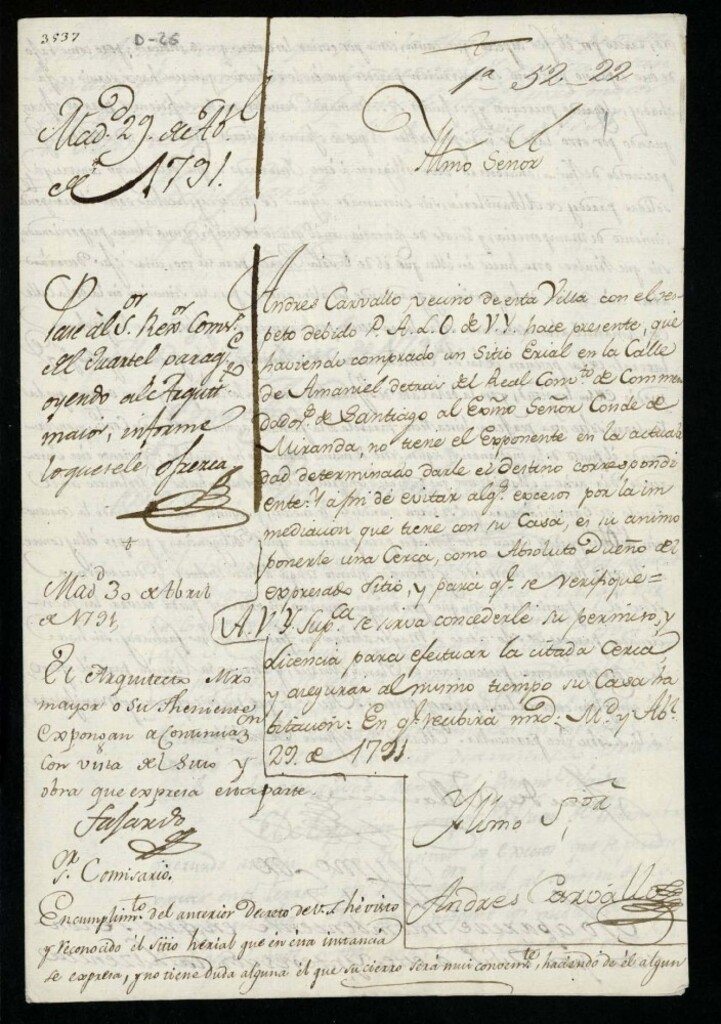 3537
D-26
1ª 52-22
Madᵈ 29. de Abˡ
de 1791.
Yllmo Señor
Pase al Sᵒʳ Rexᵒʳ Comisᵒ
del Quartel para qᵉ
oyendo al Arquitᵗᵒ
maior, informe
lo que se le ofrezca
Madᵈ 30 de Abril
de 1791
El Arquitecto Mro
mayor o su Theniente
expongan a Continuazᵒⁿ
con vista del Sitio y
obra que expresa esta parte.
Faxardo
Sʳ Comisario.
Andres Carvallo vecino de esta Villa con el res-
peto debido P. A. L. O. de V. Y. hace presente, que
haviendo comprado un Sitio Erial en la Calle
de Amaniel detras del Real Comᵗᵒ de Commen
dadorˢ de Santiago al Exmo Señor Conde de
Miranda, no tiene el Exponente en la actuali
dad determinado darle el Destino correspondi
ente: Y a fin de evitar algˢ excesos por la in
mediacion que tiene con su Casa, es su animo
ponerle una Cerca, como Absoluto Dueño del
expresado Sitio, y para qᵉ se verifique=
A. V. Y. Supᶜᵃ se sirva concederle su permiso, y
Licencia para efectuar la citada Cerca
y asegurar al mismo tiempo su Casa ha
bitacion: En qᵉ recibirá mrd: Mᵈ y Abˡ
29. de 1791
Yllmo Sᵒʳ
Andres Carvallo
En cumplimᵗᵒ del anterior Decreto de V.S. he visto
y reconocido el sitio herial que en esta instancia
se expresa, y no tiene duda alguna el que su cierro será mui convenᵗᵉ, haciendo de él algun